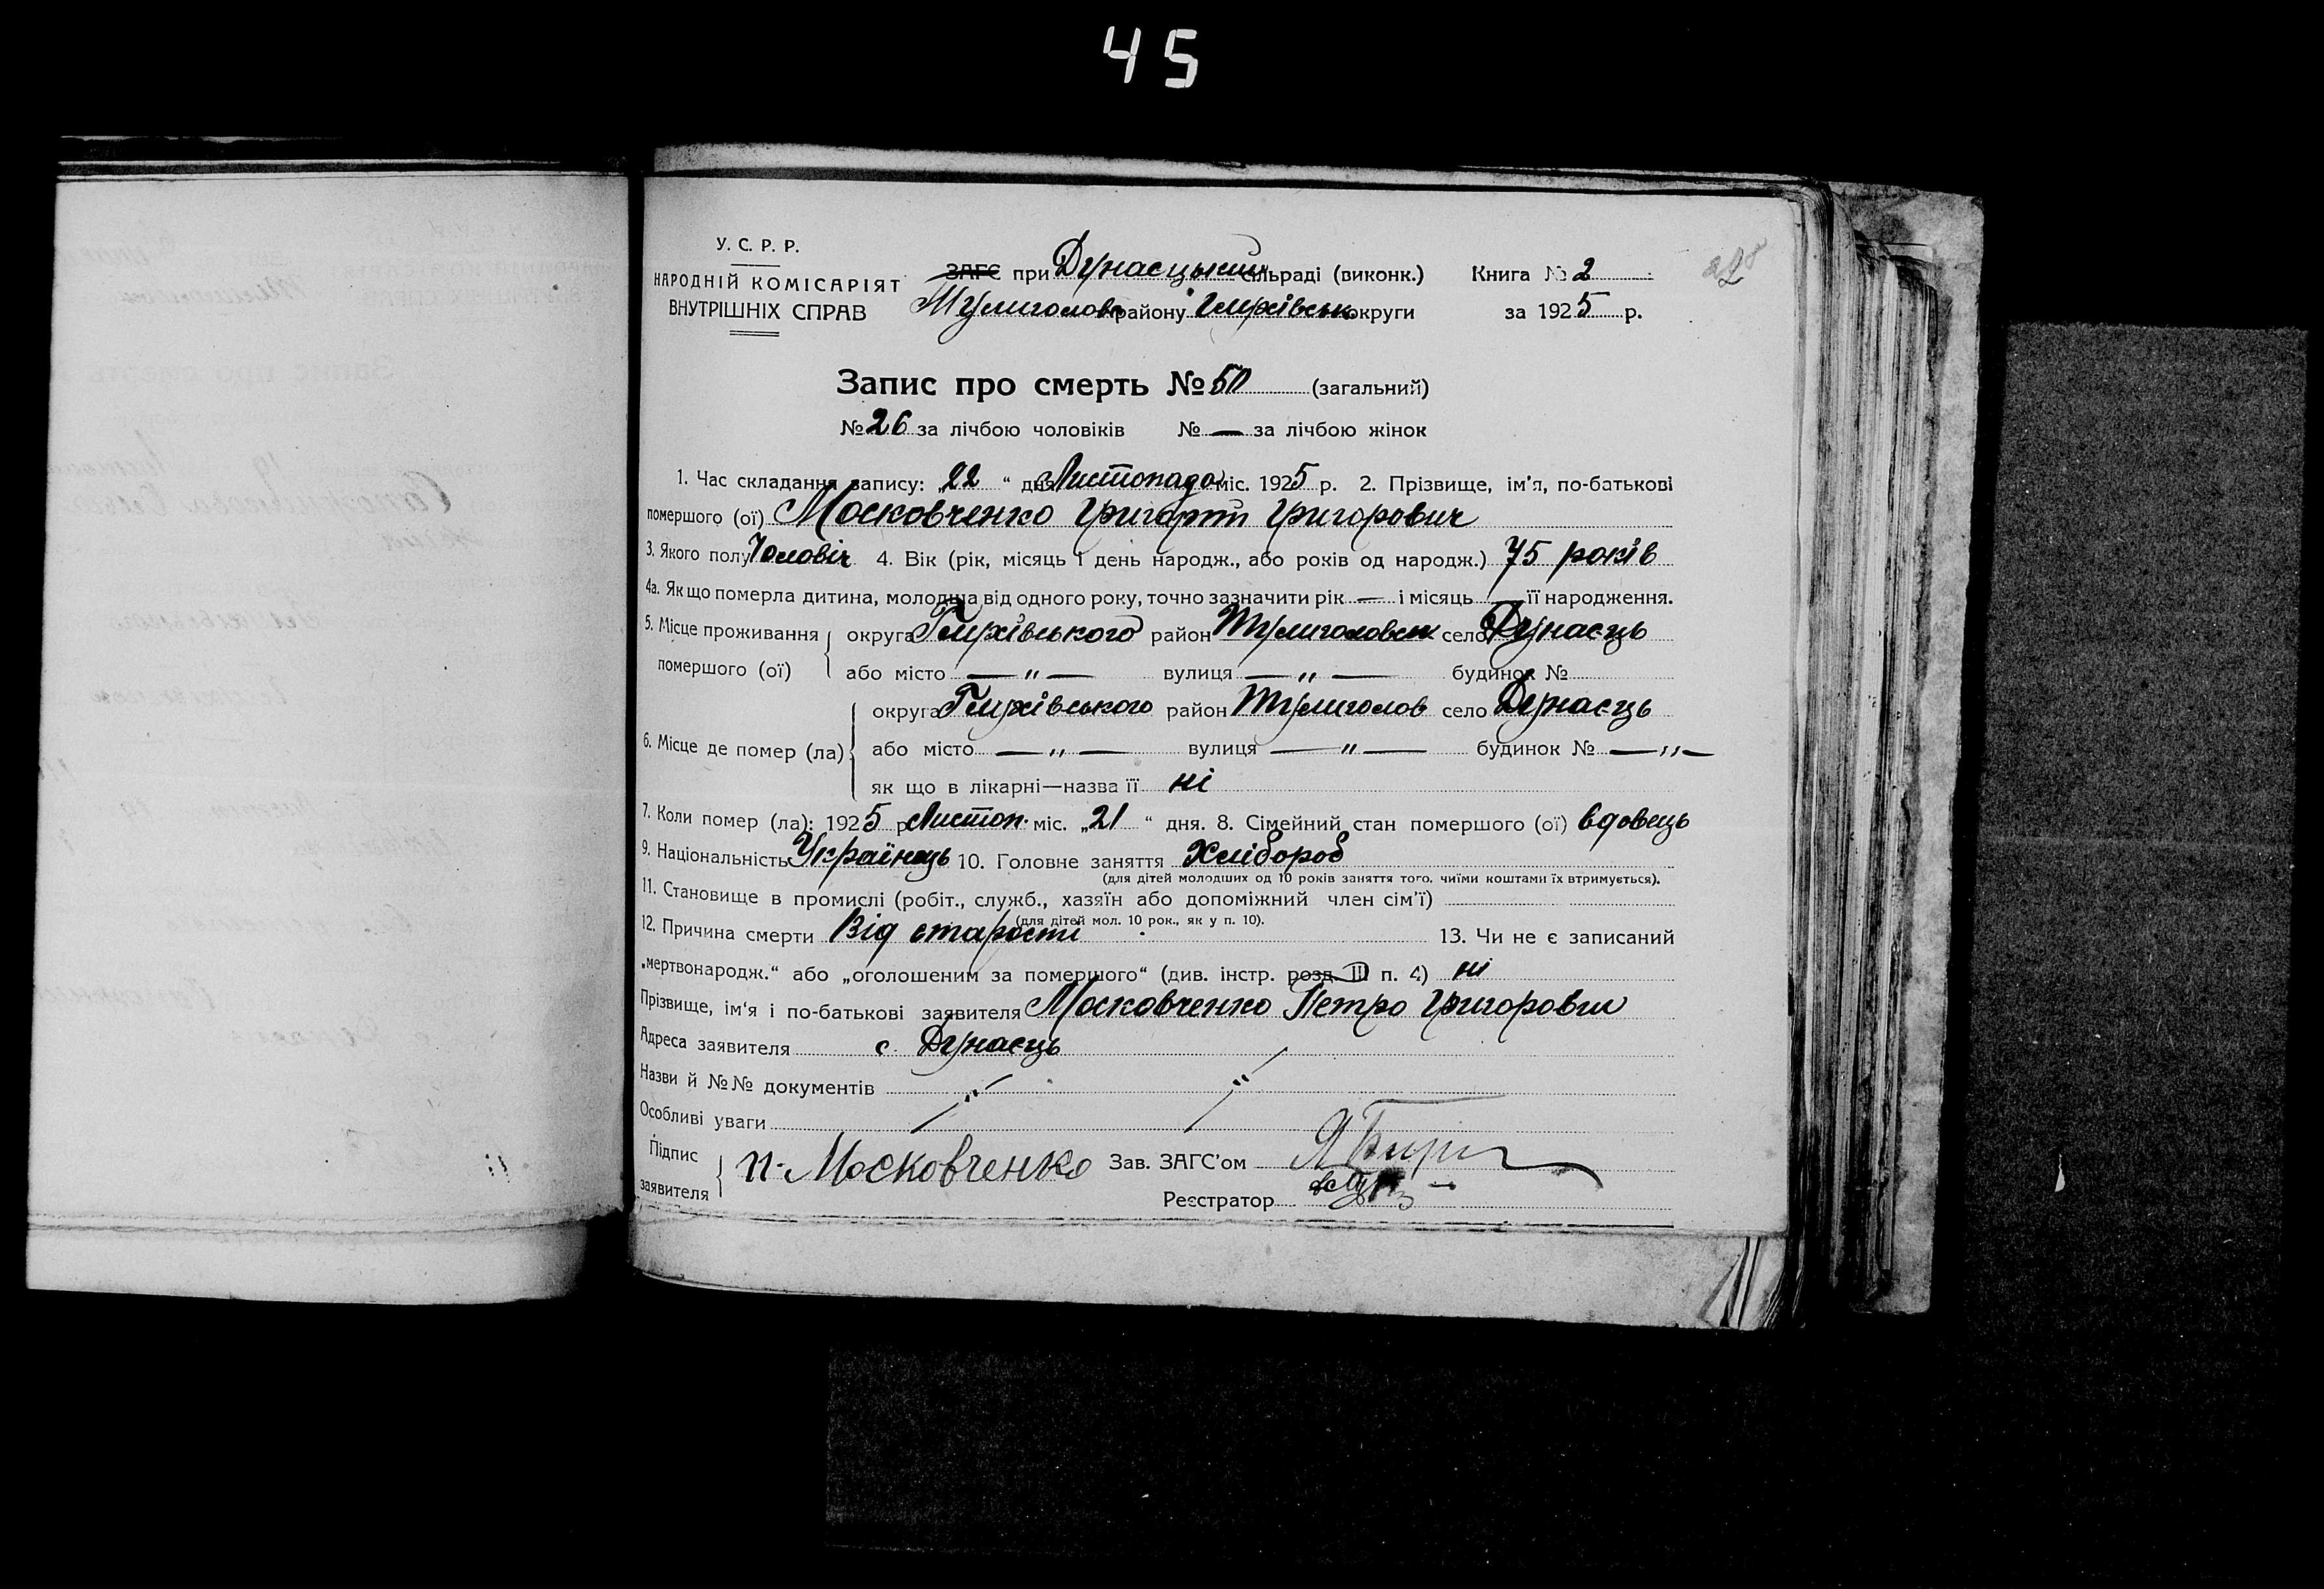 45
У. С. Р. Р.
НАРОДНІЙ КОМІСАРІЯТ
ВНУТРІШНІХ СПРАВ
ЗАГС при Дунаєцький сільраді (виконк.) Книга № 2
Тулиголовс району Глухівськ округи за 1925 р.
Запис про смерть № 50 (загальний)
№ 26 за лічбою чоловіків № — за лічбою жінок
1. Час складання запису: „22“ дня Листопада міс. 1925 р. 2. Прізвище, ім'я, по-батькові
помершого (ої) Московченко Григорій Григорович
3. Якого полу Чоловіч 4. Вік (рік, місяць і день народж., або років од народж.) 75 років
4а. Як що померла дитина, молодша від одного року, точно зазначити рік — і місяць — її народження.
5. Місце проживання помершого (ої) { округа Глухівського район Тулиголовськ село Дунаєць
або місто — „ — вулиця — „ — будинок №
6. Місце де помер (ла) { округа Глухівського район Тулиголов село Дунаєць
або місто — „ — вулиця — „ — будинок № — „ —
як що в лікарні—назва її ні
7. Коли помер (ла): 1925 р. Листоп. міс. „21“ дня. 8. Сімейний стан помершого (ої) вдовець
9. Національність Українець 10. Головне заняття Хлібороб
(для дітей молодших од 10 років заняття того, чиїми коштами їх втримується).
11. Становище в промислі (робіт., служб., хазяїн або допоміжний член сім'ї)
(для дітей мол. 10 рок., як у п. 10).
12. Причина смерти Від старости 13. Чи не є записаний
„мертвонародж.“ або „оголошеним за помершого“ (див. інстр. розд. III п. 4) ні
Прізвище, ім'я і по-батькові заявителя Московченко Петро Григорович
Адреса заявителя с. Дунаєць
Назви й №№ документів — „ — — „ —
Особливі уваги
Підпис заявителя { П. Московченко Зав. ЗАГС'ом
Реєстратор